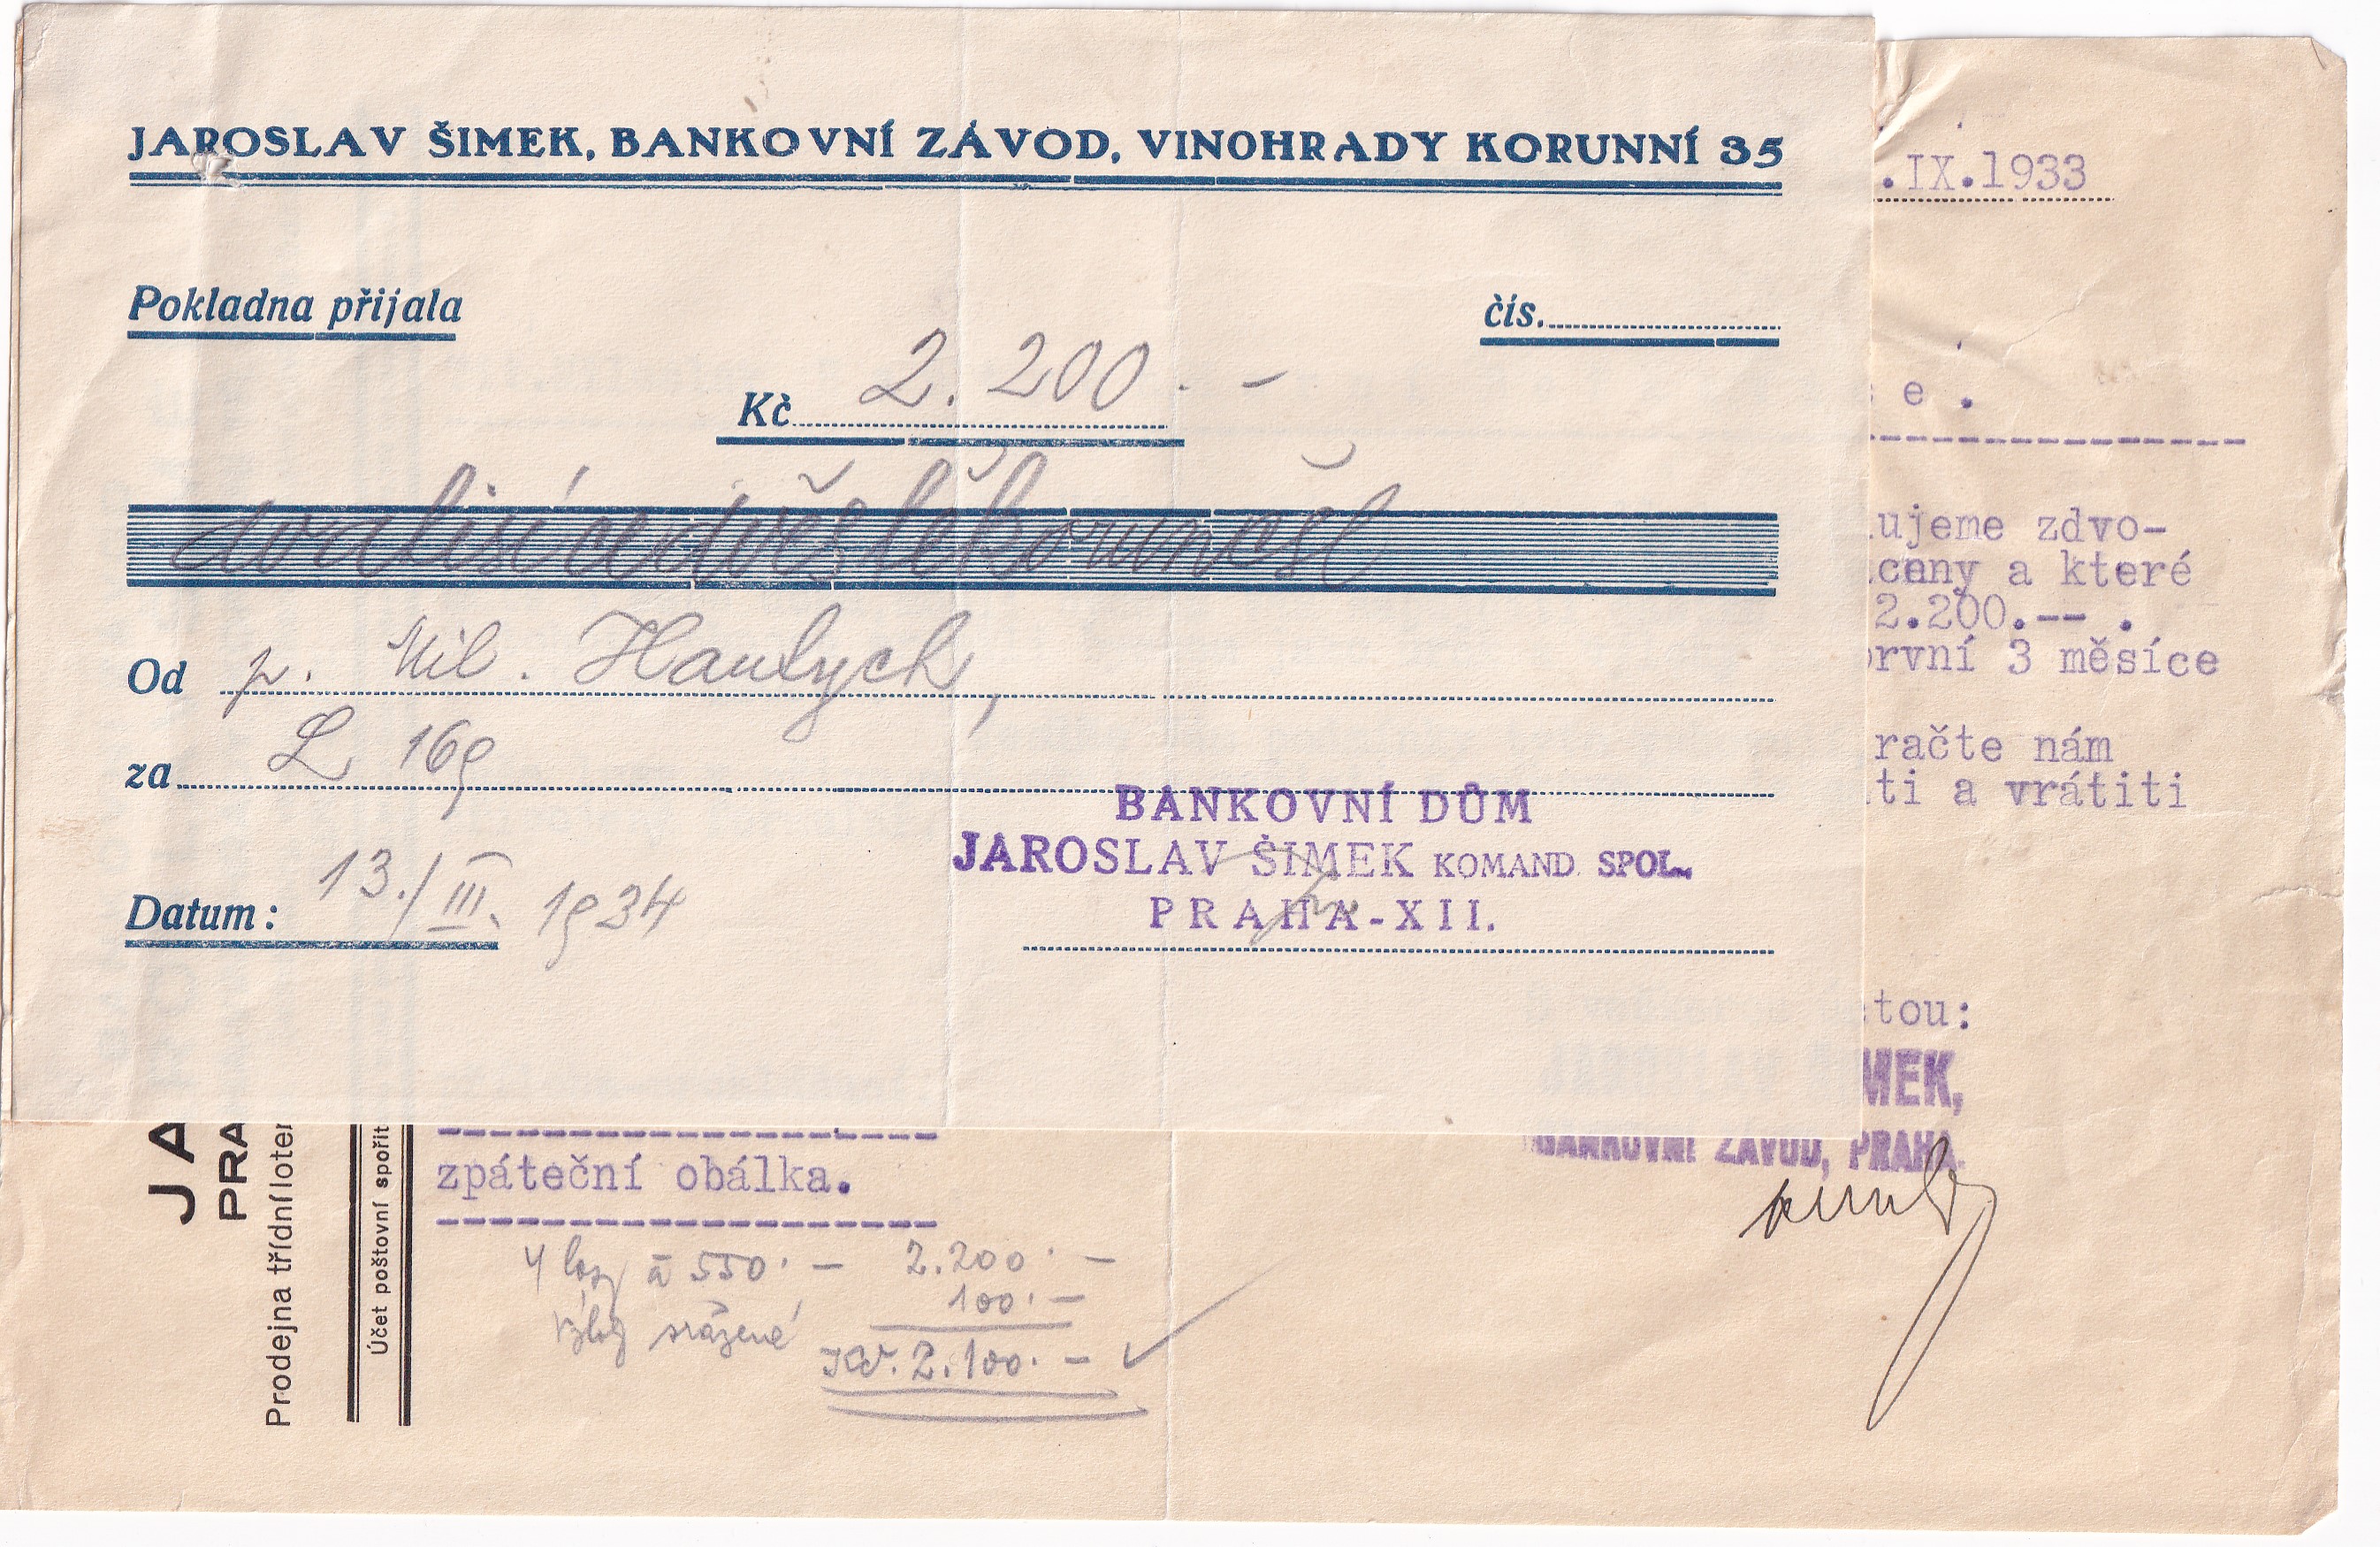 JAROSLAV ŠIMEK, BANKOVNÍ ZÁVOD, VINOHRADY KORUNNÍ 35
Pokladna přijala
čís.
Kč 2.200.-
dvatisícedvěstěkorunčsl
Od p. Mil. Hanlych,
za L 169
Datum: 13./III. 1934
BANKOVNÍ DŮM
JAROSLAV ŠIMEK KOMAND. SPOL.
PRAHA-XII.
.IX.1933
e .
ujeme zdvo-
ceny a které
2.200.-- .
rvní 3 měsíce
račte nám
ti a vrátiti
tou:
MEK,
BANKOVNÍ ZÁVOD, PRAHA.
JA
PRA
Prodejna třídní loter
Účet poštovní spořit
zpáteční obálka.
4 losy à 550.- 2.200.-
100.-
sražené
Kč. 2.100.-